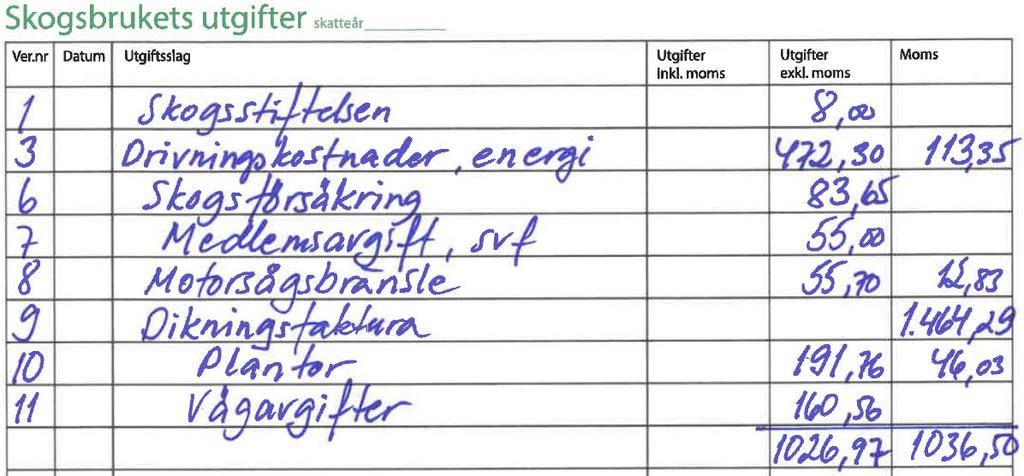 Skogsbrukets utgifter skatteår
Ver.nr Datum Utgiftsslag Utgifter inkl. moms Utgifter exkl. moms Moms
1 Skogsstiftelsen 8,00
3 Drivningskostnader, energi 472,30 113,35
6 Skogsförsäkring 83,65
7 Medlemsavgift, svf 55,00
8 Motorsågsbränsle 55,70 12,83
9 Dikningsfaktura 1.464,29
10 Plantor 191,76 46,03
11 Vägavgifter 160,56
1026,97 1036,50